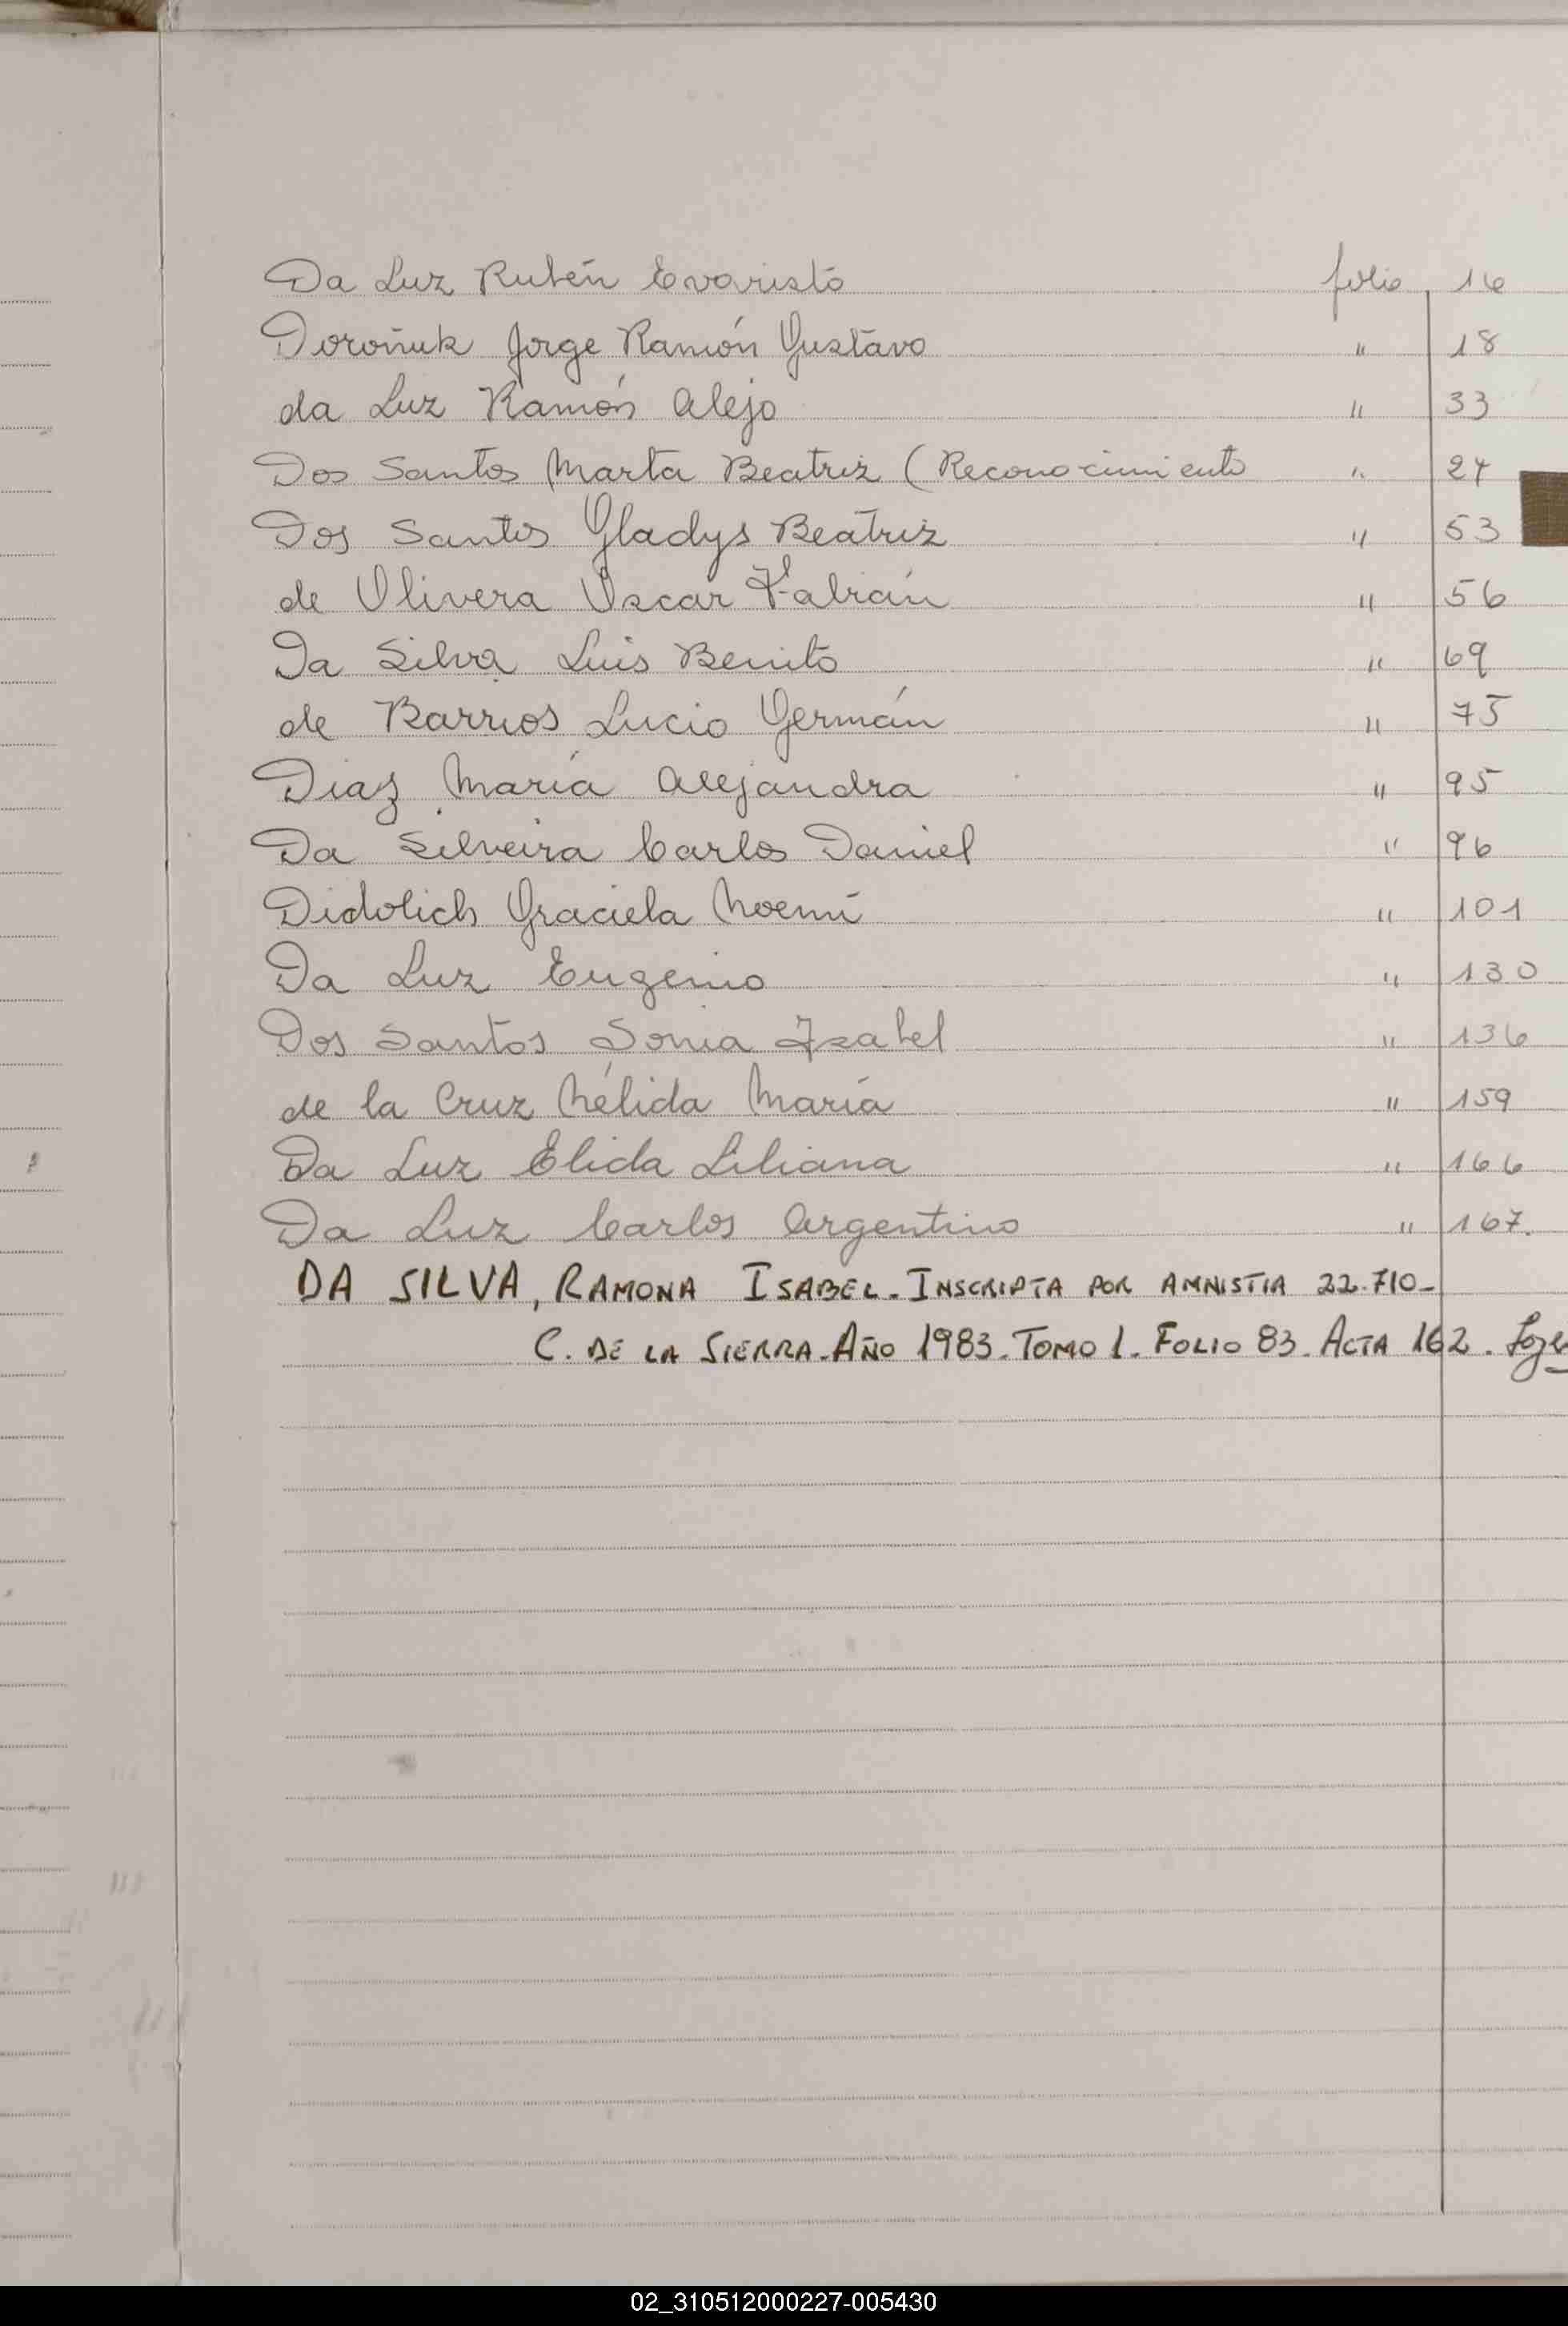 Da Luz Rubén Evaristo folio 16
Doroñuk Jorge Ramón Gustavo " 18
da Luz Ramón Alejo " 33
Dos Santos Marta Beatriz (Reconocimiento " 27
Dos Santos Gladys Beatriz " 53
de Olivera Oscar Fabián " 56
Da Silva Luis Benito " 69
de Barrios Lucio Germán " 75
Diaz María Alejandra " 95
Da Silveira Carlos Daniel " 96
Didolich Graciela Noemí " 101
Da Luz Eugenio " 130
Dos Santos Sonia Izabel " 136
de la Cruz Nélida María " 159
Da Luz Elida Liliana " 166
Da Luz Carlos Argentino " 167.
DA SILVA, RAMONA ISABEL. INSCRIPTA POR AMNISTIA 22.710-
C. DE LA SIERRA. AÑO 1983. TOMO 1. FOLIO 83. ACTA 162.
02_310512000227-005430